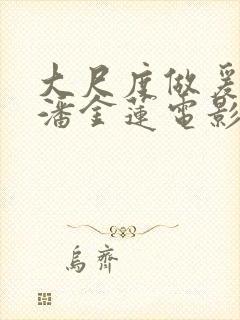 大尺度做爰
潘金莲电影
烏齋